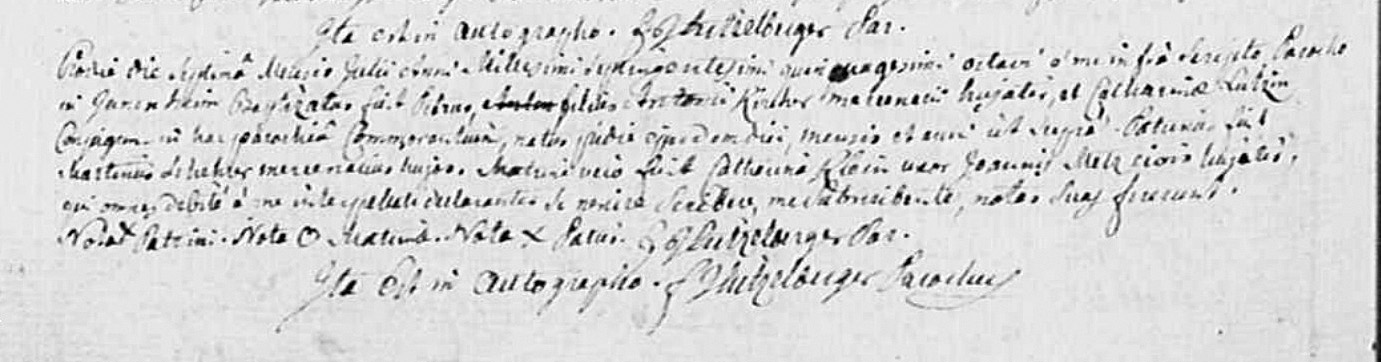 Ita est in Autographo. Lutzelburger Par.
Hodie die Septimâ Mensis Julii Anni Millesimi Septingentesimi quinquagesimi octavi à me infrà Scripto Parocho
in Baptizatus fuit Petrus, filius Antonii Kircher mercenarii hujatis, et Catharinæ Lutzin
Conjugum in hac parochiâ Commorantium, natus pridie ejusdem diei, mensis et anni ut Suprà. Patrinus fuit
Martinus mercenarius hujas. Matrina verò fuit Catharina Klein uxor Joannis Metz civis hujatis,
qui omnes debitè à me interpellati declarantes Se nescire Scribere, me Subscribente, notas Suas fecerunt.
Nota Patrini. Nota O Matrinæ. Nota x Patris. Lutzelburger Par.
Ita Est in Autographo. Lutzelburger Parochus